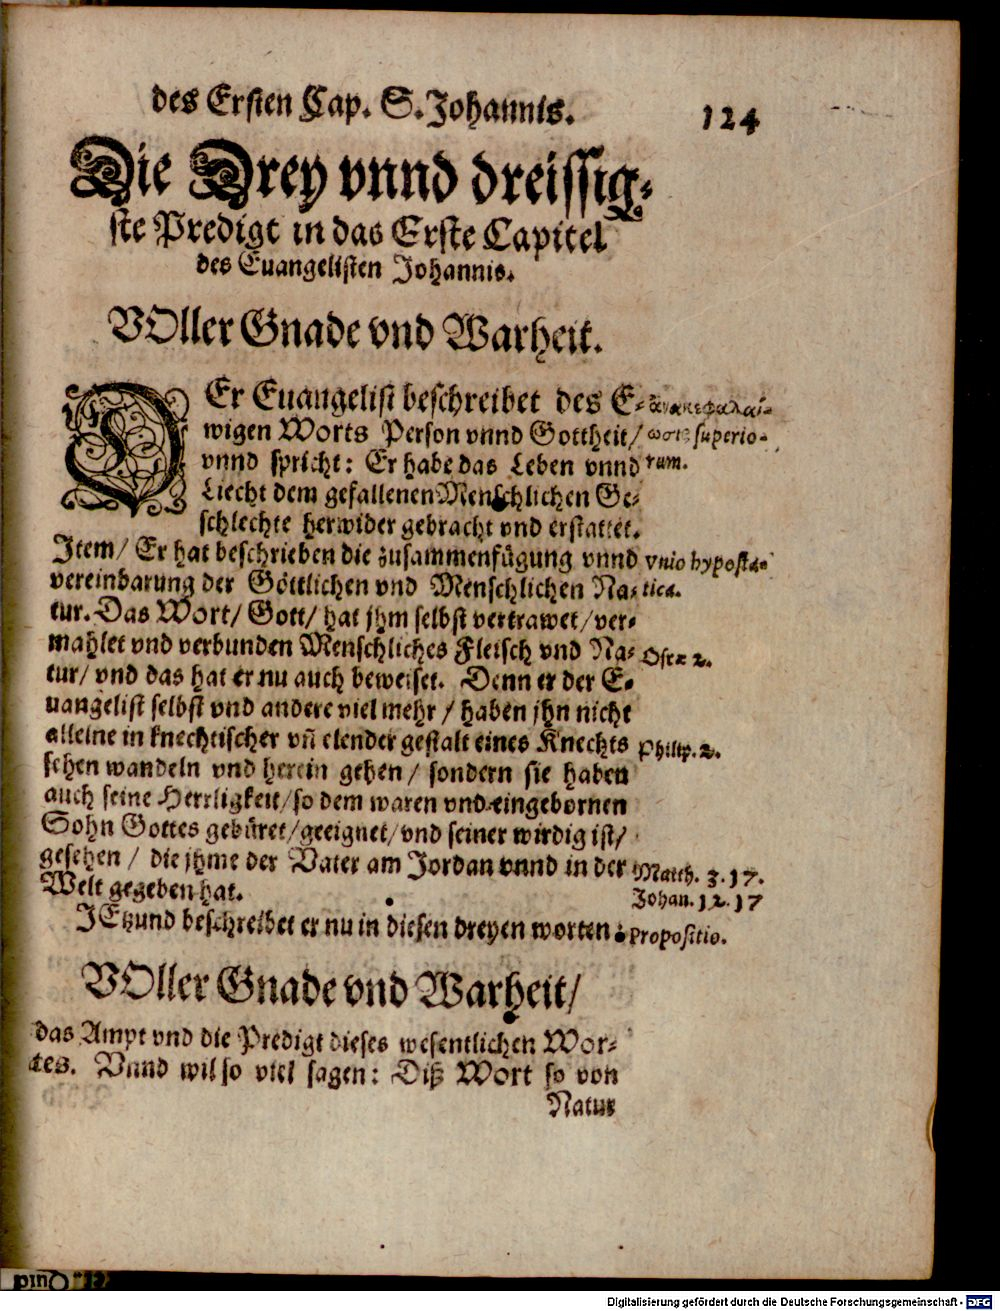 des Ersten Cap. S. Johannis. 124
Die Drey vnnd dreissig-
ste Predigt in das Erste Capitel
des Euangelisten Johannis.
VOller Gnade vnd Warheit.
DEr Euangelist beschreibet des E-
wigen Worts Person vnnd Gottheit/
vnnd spricht: Er habe das Leben vnnd
Liecht dem gefallenen Menschlichen Ge-
schlechte herwider gebracht vnd erstattet.
Item/ Er hat beschrieben die zusammenfügung vnnd
vereinbarung der Göttlichen vnd Menschlichen Na-
tur. Das Wort/ Gott/ hat jhm selbst vertrawet/ ver-
mahlet vnd verbunden Menschliches Fleisch vnd Na-
tur/ vnd das hat er nu auch beweiset. Denn er der E-
uangelist selbst vnd andere viel mehr/ haben jhn nicht
alleine in knechtischer vñ elender gestalt eines Knechts
sehen wandeln vnd herein gehen/ sondern sie haben
auch seine Herrligkeit/ so dem waren vnd eingebornen
Sohn Gottes gebüret/ geeignet/ vnd seiner wirdig ist/
gesehen/ die jhme der Vater am Jordan vnnd in der
Welt gegeben hat.
JEtzund beschreibet er nu in diesen dreyen worten:
VOller Gnade vnd Warheit/
das Ampt vnd die Predigt dieses wesentlichen Wor-
tes. Vnnd wil so viel sagen: Diß Wort so von
Natur
ἀνακεφαλαί-
ωσις superio-
rum.
Vnio hyposta-
tica.
Ose 2.
Philip. 2.
Matth. 3. 17.
Johan. 12. 17
Propositio.
Digitalisierung gefördert durch die Deutsche Forschungsgemeinschaft - DFG